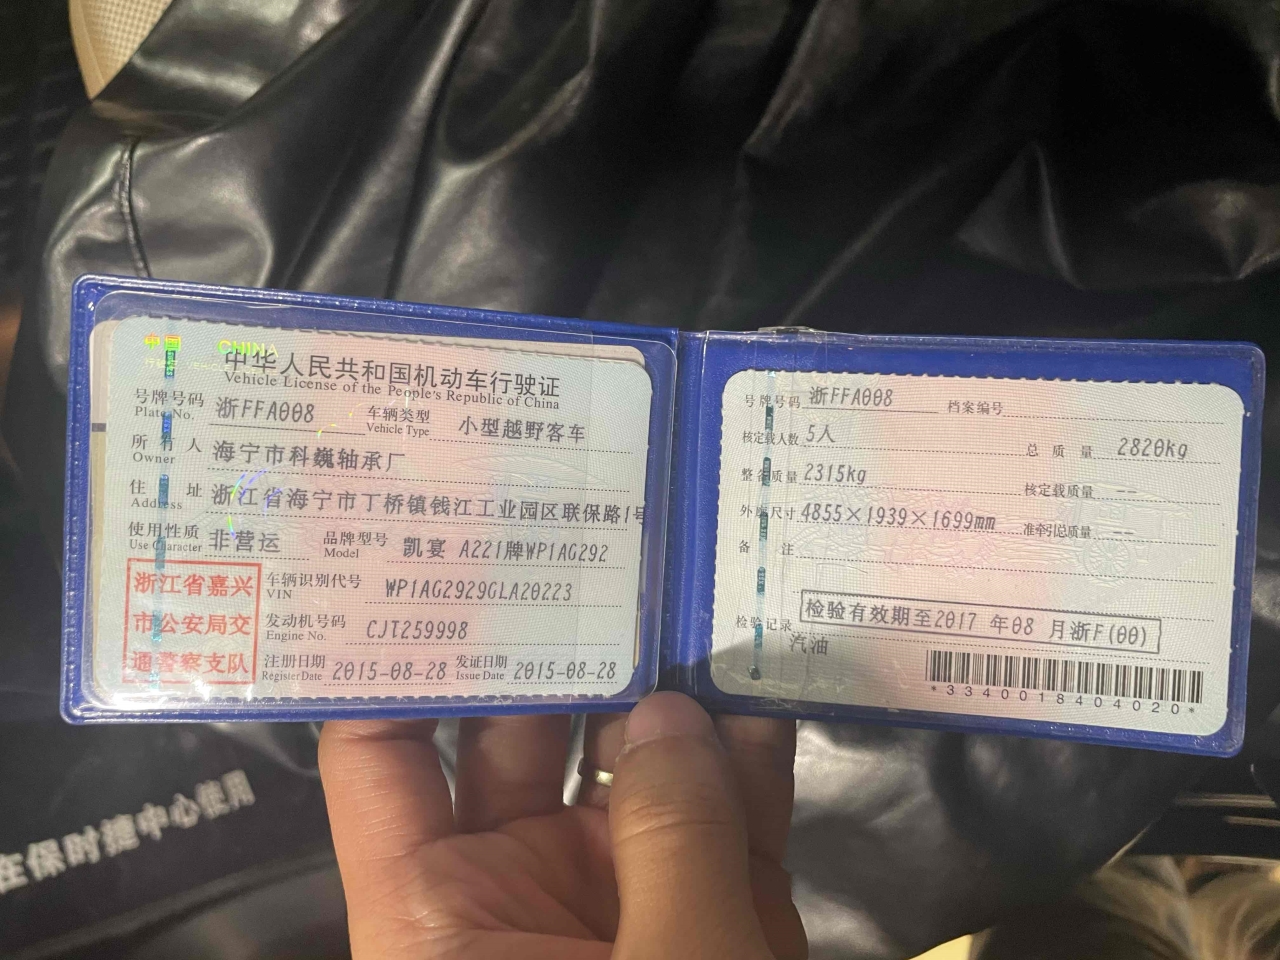 中国 CHINA
中华人民共和国机动车行驶证
Vehicle License of the People's Republic of China
号牌号码 浙FFA008 车辆类型 小型越野客车
Plate No. Vehicle Type
所有人 海宁市科巍轴承厂
Owner
住址 浙江省海宁市丁桥镇钱江工业园区联保路1号
Address
使用性质 非营运 品牌型号 凯宴 A221牌WP1AG292
Use Character Model
浙江省嘉兴
市公安局交
通警察支队
车辆识别代号 WP1AG2929GLA20223
VIN
发动机号码 CJT259998
Engine No.
注册日期 2015-08-28 发证日期 2015-08-28
Register Date Issue Date
号牌号码 浙FFA008 档案编号
核定载人数 5人 总质量 2820kg
整备质量 2315kg 核定载质量 --
外廓尺寸 4855×1939×1699mm 准牵引总质量 --
备注
检验记录 检验有效期至2017 年08 月浙F(00)
汽油
*3340018404020*
在保时捷中心使用